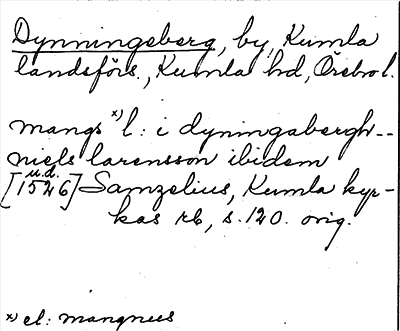 Dynningeberg, by, Kumla
landsförs., Kumla hd, Örebro l.
mangs x) l: i dyningabergh--
niels larensson ibidem
[u.d. 1526] Samzelius, Kumla kyr-
kas rb, s. 120. orig.
x) el: mangnus